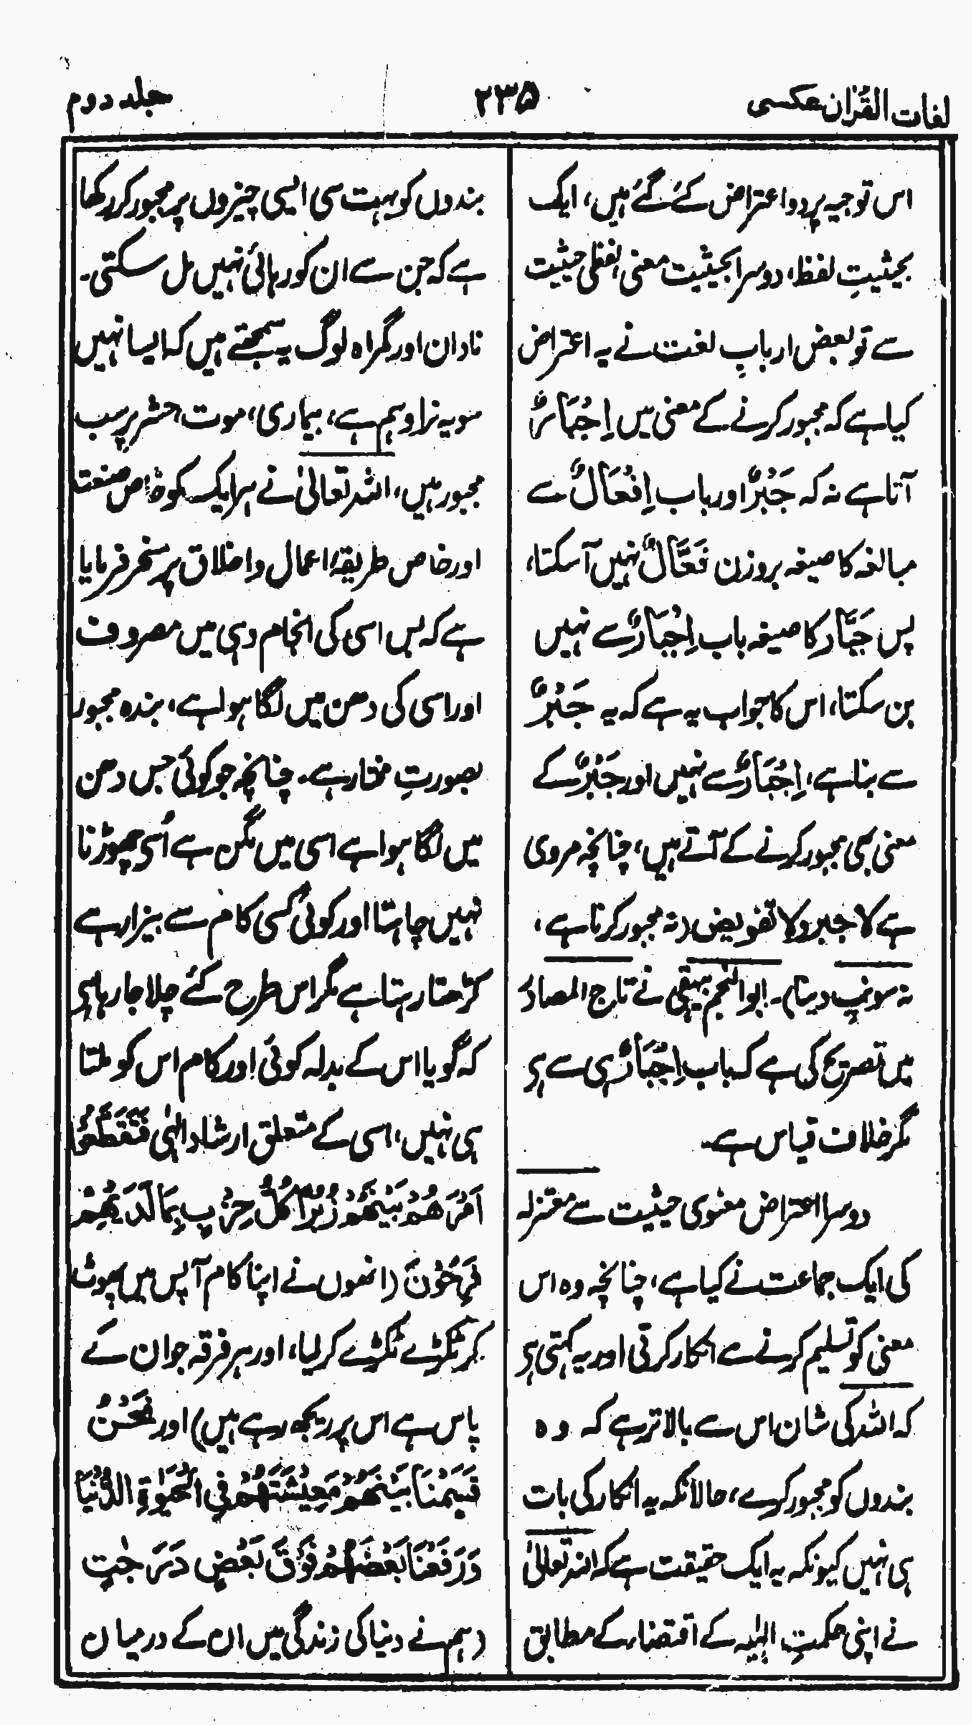 لغات القرآن عکسی
۲۳۵
جلد دوم
اس توجیہ پر دو اعتراض کئے گئے ہیں، ایک
بحیثیتِ لفظ، دوسرا بحیثیت معنی لفظی حیثیت
سے تو بعض اربابِ لغت نے یہ اعتراض
کیا ہے کہ مجبور کرنے کے معنی میں اِجْبَارٌ
آتا ہے نہ کہ جَبْرٌ اور باب اِفْعَالٌ سے
مبالغہ کا صیغہ بروزن فَعَّالٌ نہیں آ سکتا،
پس جَبَّار کا صیغہ باب اِجْبَارٌ سے نہیں
بن سکتا، اس کا جواب یہ ہے کہ یہ جَبْرٌ
سے بنا ہے، اِجْبَارٌ سے نہیں اور جَبْرٌ کے
معنی بھی مجبور کرنے کے آتے ہیں، چنانچہ مروی
ہے لا جبر ولا تفویض (نہ مجبور کرنا ہے،
نہ سونپ دینا)۔ ابو النجم بیہقی نے تاج المصادر
میں تصریح کی ہے کہ باب اِجْبَارٌ ہی سے ہر
مگر خلاف قیاس ہے۔
دوسرا اعتراض معنوی حیثیت سے معتزلہ
کی ایک جماعت نے کیا ہے، چنانچہ وہ اس
معنی کو تسلیم کرنے سے انکار کرتی اور یہ کہتی ہر
کہ اللہ کی شان اس سے بالاتر ہے کہ وہ
بندوں کو مجبور کرے، حالانکہ یہ انکار کی بات
ہی نہیں کیونکہ یہ ایک حقیقت ہے کہ اللہ تعالیٰ
نے اپنی حکمتِ الٰہیہ کے اقتضاء کے مطابق
بندوں کو بہت سی ایسی چیزوں پر مجبور کر رکھا
ہے کہ جن سے ان کو رہائی نہیں مل سکتی۔
نادان اور گمراہ لوگ یہ سمجھتے ہیں کہ ایسا نہیں
سو یہ نرا وہم ہے، بیماری، موت، حشر پر سب
مجبور ہیں، اللہ تعالیٰ نے ہر ایک کو خاص صنعت
اور خاص طریقۂ اعمال و اخلاق پر مسخر فرمایا
ہے کہ بس اسی کی انجام دہی میں مصروف
اور اسی کی دھن میں لگا ہوا ہے، بندہ مجبور
بصورتِ مختار ہے۔ چنانچہ جو کوئی جس دھن
میں لگا ہوا ہے اسی میں مگن ہے اُسی چھوڑنا
نہیں چاہتا اور کوئی کسی کام سے بیزار ہے
کڑھتا رہتا ہے مگر اس طرح کئے چلا جا رہا ہر
کہ گویا اس کے بدلہ کوئی اور کام اس کو ملتا
ہی نہیں، اسی کے متعلق ارشاد الٰہی فَتَقَطَّعُوْا
اَمْرَھُمْ بَیْنَھُمْ زُبُرًا کُلُّ حِزْبٍ بِمَا لَدَیْھِمْ
فَرِحُوْنَ (انھوں نے اپنا کام آپس میں پھوٹ
کر ٹکڑے ٹکڑے کر لیا، اور ہر فرقہ جو ان کے
پاس ہے اس پر ریجھ رہے ہیں) اور نَحْنُ
قَسَمْنَا بَیْنَھُمْ مَعِیْشَتَھُمْ فِی الْحَیٰوةِ الدُّنْیَا
وَرَفَعْنَا بَعْضَھُمْ فَوْقَ بَعْضٍ دَرَجٰتٍ
(ہم نے دنیا کی زندگی میں ان کے درمیان